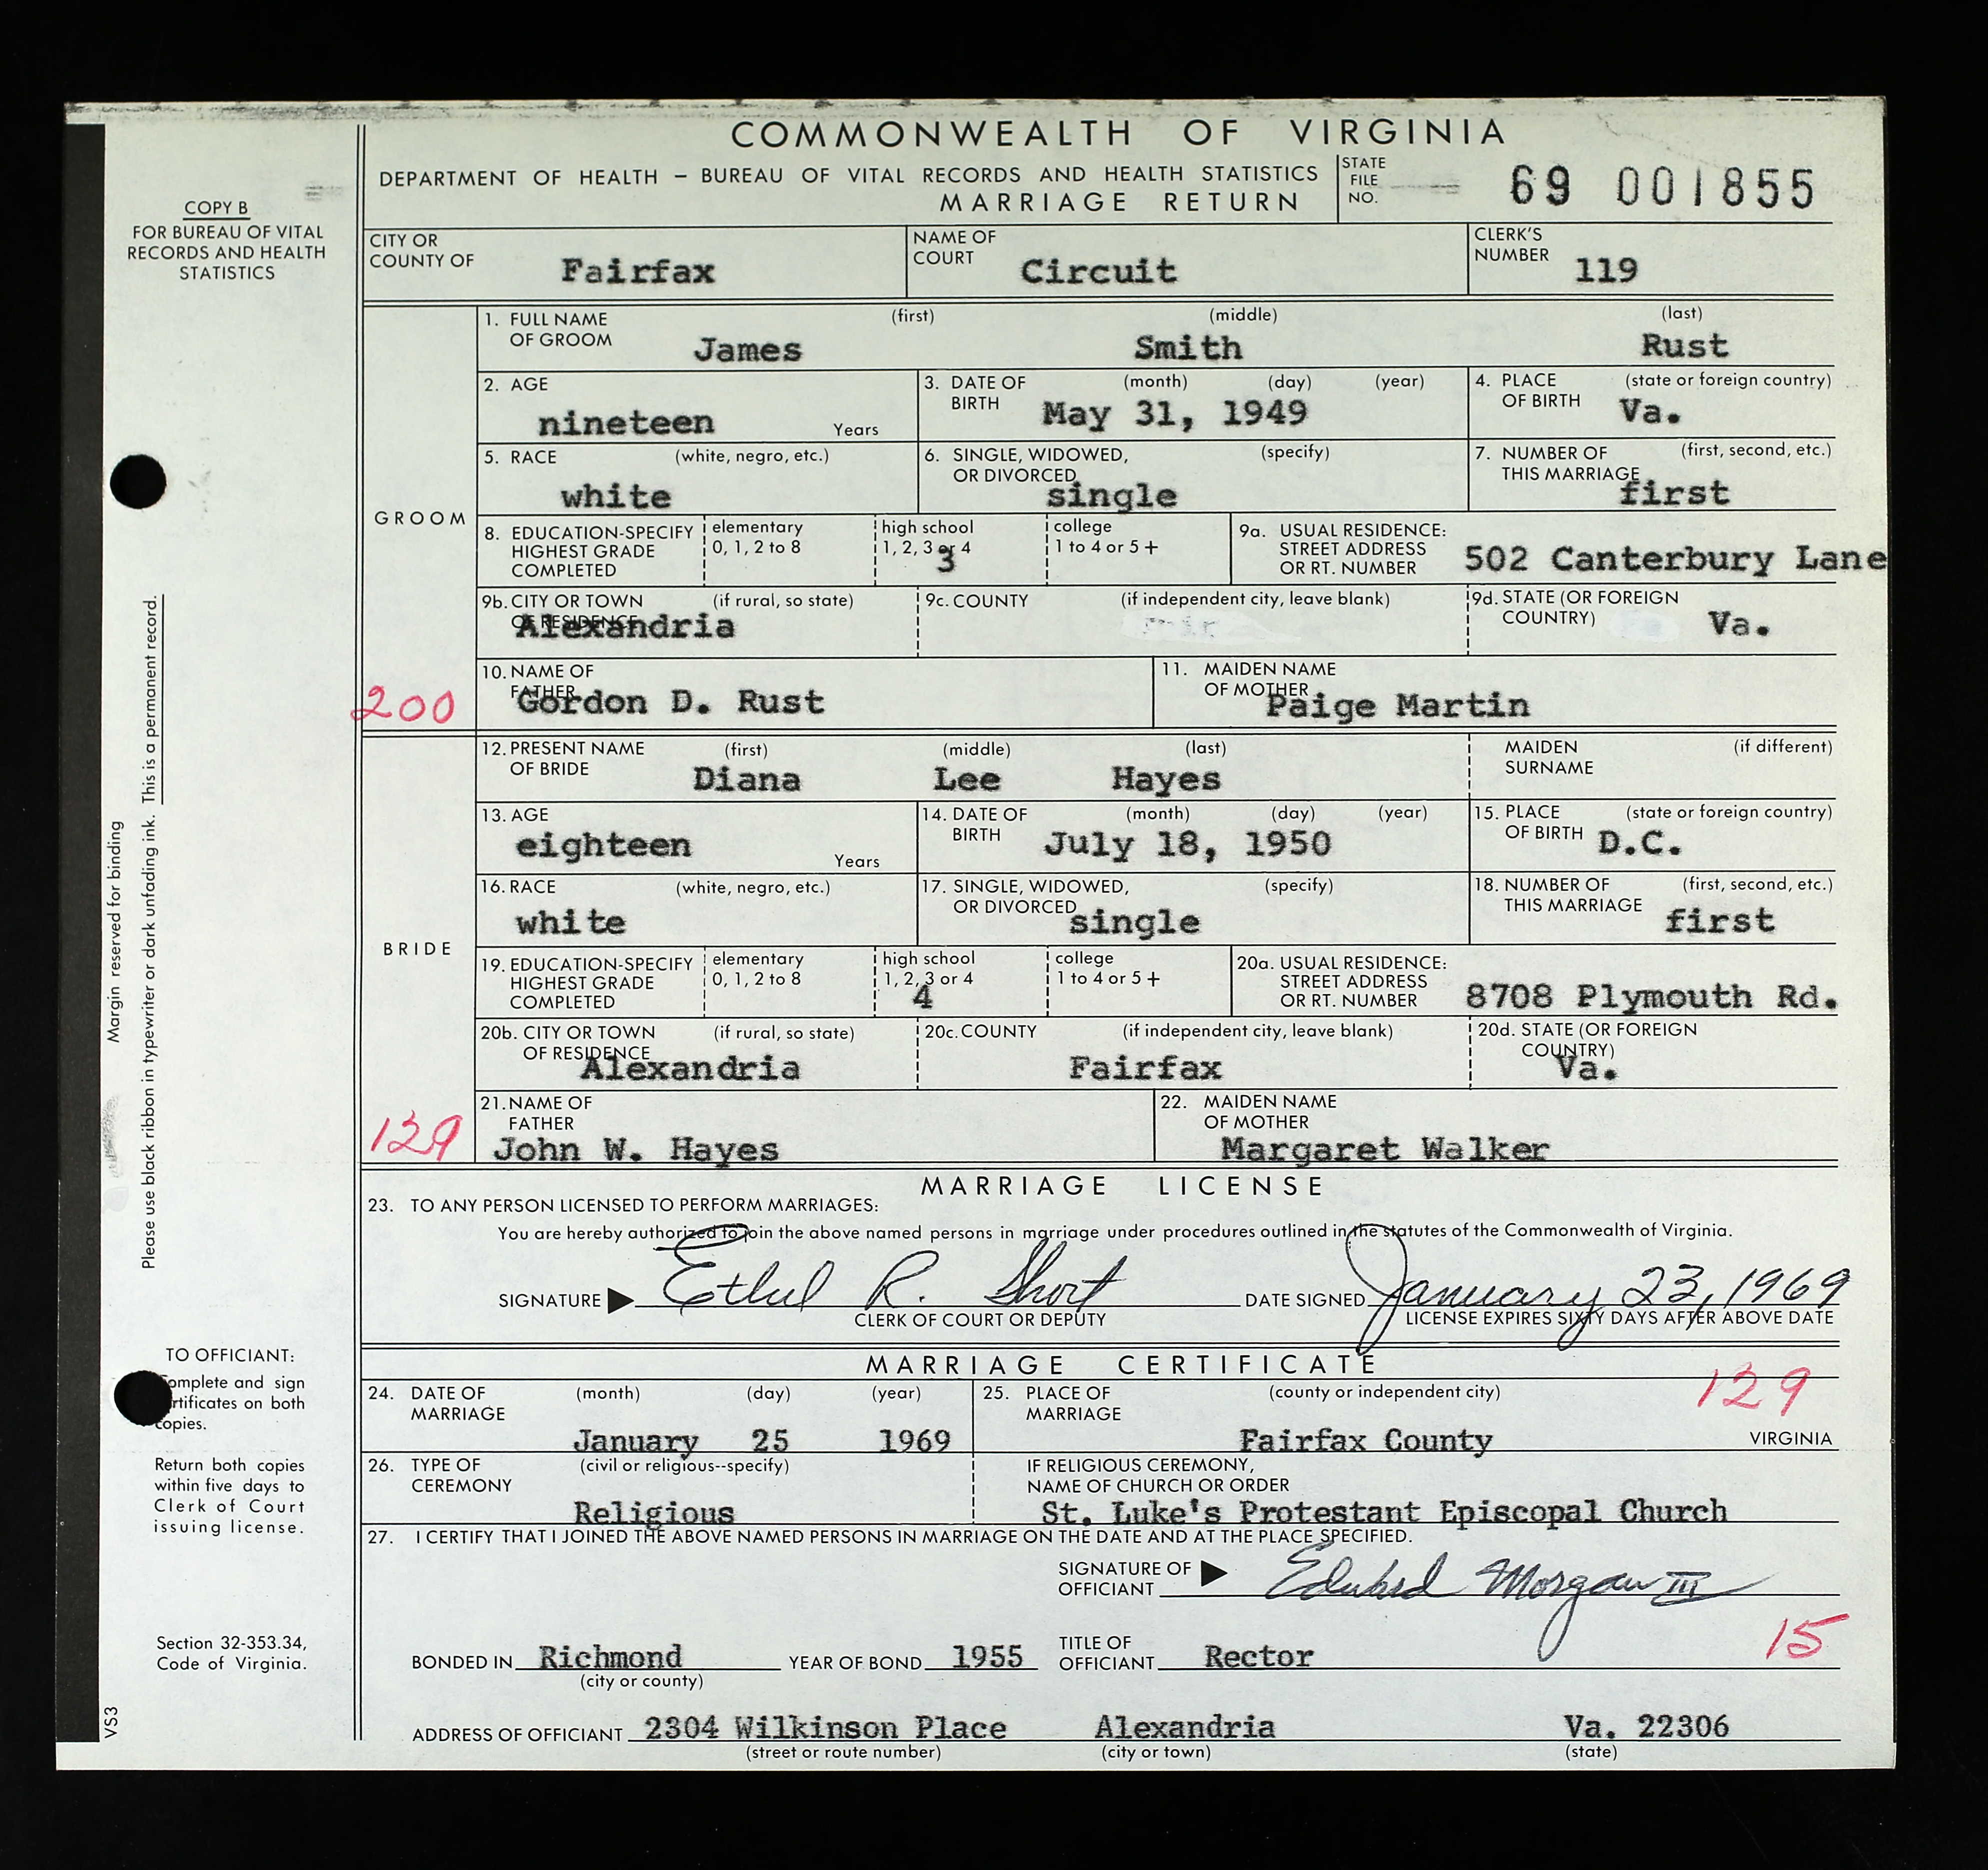 COMMONWEALTH OF VIRGINIA
DEPARTMENT OF HEALTH – BUREAU OF VITAL RECORDS AND HEALTH STATISTICS
MARRIAGE RETURN
STATE FILE NO. 69 001855
COPY B
FOR BUREAU OF VITAL
RECORDS AND HEALTH
STATISTICS
CITY OR COUNTY OF Fairfax NAME OF COURT Circuit CLERK'S NUMBER 119
GROOM
1. FULL NAME OF GROOM (first) James (middle) Smith (last) Rust
2. AGE nineteen Years 3. DATE OF BIRTH (month) (day) (year) May 31, 1949 4. PLACE OF BIRTH (state or foreign country) Va.
5. RACE (white, negro, etc.) white 6. SINGLE, WIDOWED, OR DIVORCED (specify) single 7. NUMBER OF THIS MARRIAGE (first, second, etc.) first
8. EDUCATION-SPECIFY HIGHEST GRADE COMPLETED elementary 0, 1, 2 to 8 high school 1, 2, 3 or 4 3 college 1 to 4 or 5 + 9a. USUAL RESIDENCE: STREET ADDRESS OR RT. NUMBER 502 Canterbury Lane
9b. CITY OR TOWN OF RESIDENCE (if rural, so state) Alexandria 9c. COUNTY (if independent city, leave blank) 9d. STATE (OR FOREIGN COUNTRY) Va.
10. NAME OF FATHER Gordon D. Rust 11. MAIDEN NAME OF MOTHER Paige Martin
200
BRIDE
12. PRESENT NAME OF BRIDE (first) Diana (middle) Lee (last) Hayes MAIDEN SURNAME (if different)
13. AGE eighteen Years 14. DATE OF BIRTH (month) (day) (year) July 18, 1950 15. PLACE OF BIRTH (state or foreign country) D.C.
16. RACE (white, negro, etc.) white 17. SINGLE, WIDOWED, OR DIVORCED (specify) single 18. NUMBER OF THIS MARRIAGE (first, second, etc.) first
19. EDUCATION-SPECIFY HIGHEST GRADE COMPLETED elementary 0, 1, 2 to 8 high school 1, 2, 3 or 4 4 college 1 to 4 or 5 + 20a. USUAL RESIDENCE: STREET ADDRESS OR RT. NUMBER 8708 Plymouth Rd.
20b. CITY OR TOWN OF RESIDENCE (if rural, so state) Alexandria 20c. COUNTY (if independent city, leave blank) Fairfax 20d. STATE (OR FOREIGN COUNTRY) Va.
21. NAME OF FATHER John W. Hayes 22. MAIDEN NAME OF MOTHER Margaret Walker
129
Margin reserved for binding
Please use black ribbon in typewriter or dark unfading ink. This is a permanent record.
MARRIAGE LICENSE
23. TO ANY PERSON LICENSED TO PERFORM MARRIAGES:
You are hereby authorized to join the above named persons in marriage under procedures outlined in the statutes of the Commonwealth of Virginia.
SIGNATURE Ethel R. Short DATE SIGNED January 23, 1969
CLERK OF COURT OR DEPUTY LICENSE EXPIRES SIXTY DAYS AFTER ABOVE DATE
MARRIAGE CERTIFICATE
129
24. DATE OF MARRIAGE (month) (day) (year) January 25 1969 25. PLACE OF MARRIAGE (county or independent city) Fairfax County VIRGINIA
26. TYPE OF CEREMONY (civil or religious--specify) Religious IF RELIGIOUS CEREMONY, NAME OF CHURCH OR ORDER St. Luke's Protestant Episcopal Church
27. I CERTIFY THAT I JOINED THE ABOVE NAMED PERSONS IN MARRIAGE ON THE DATE AND AT THE PLACE SPECIFIED.
SIGNATURE OF OFFICIANT Edward Morgan III
15
BONDED IN Richmond YEAR OF BOND 1955 TITLE OF OFFICIANT Rector
(city or county)
ADDRESS OF OFFICIANT 2304 Wilkinson Place Alexandria Va. 22306
(street or route number) (city or town) (state)
TO OFFICIANT:
Complete and sign
certificates on both
copies.
Return both copies
within five days to
Clerk of Court
issuing license.
Section 32-353.34,
Code of Virginia.
VS3